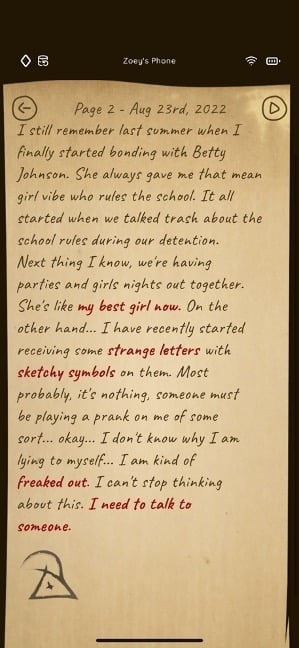 Zoey's Phone
Page 2 - Aug 23rd, 2022
I still remember last summer when I
finally started bonding with Betty
Johnson. She always gave me that mean
girl vibe who rules the school. It all
started when we talked trash about the
school rules during our detention.
Next thing I know, we're having
parties and girls nights out together.
She's like my best girl now. On the
other hand... I have recently started
receiving some strange letters with
sketchy symbols on them. Most
probably, it's nothing, someone must
be playing a prank on me of some
sort... okay... I don't know why I am
lying to myself... I am kind of
freaked out. I can't stop thinking
about this. I need to talk to
someone.